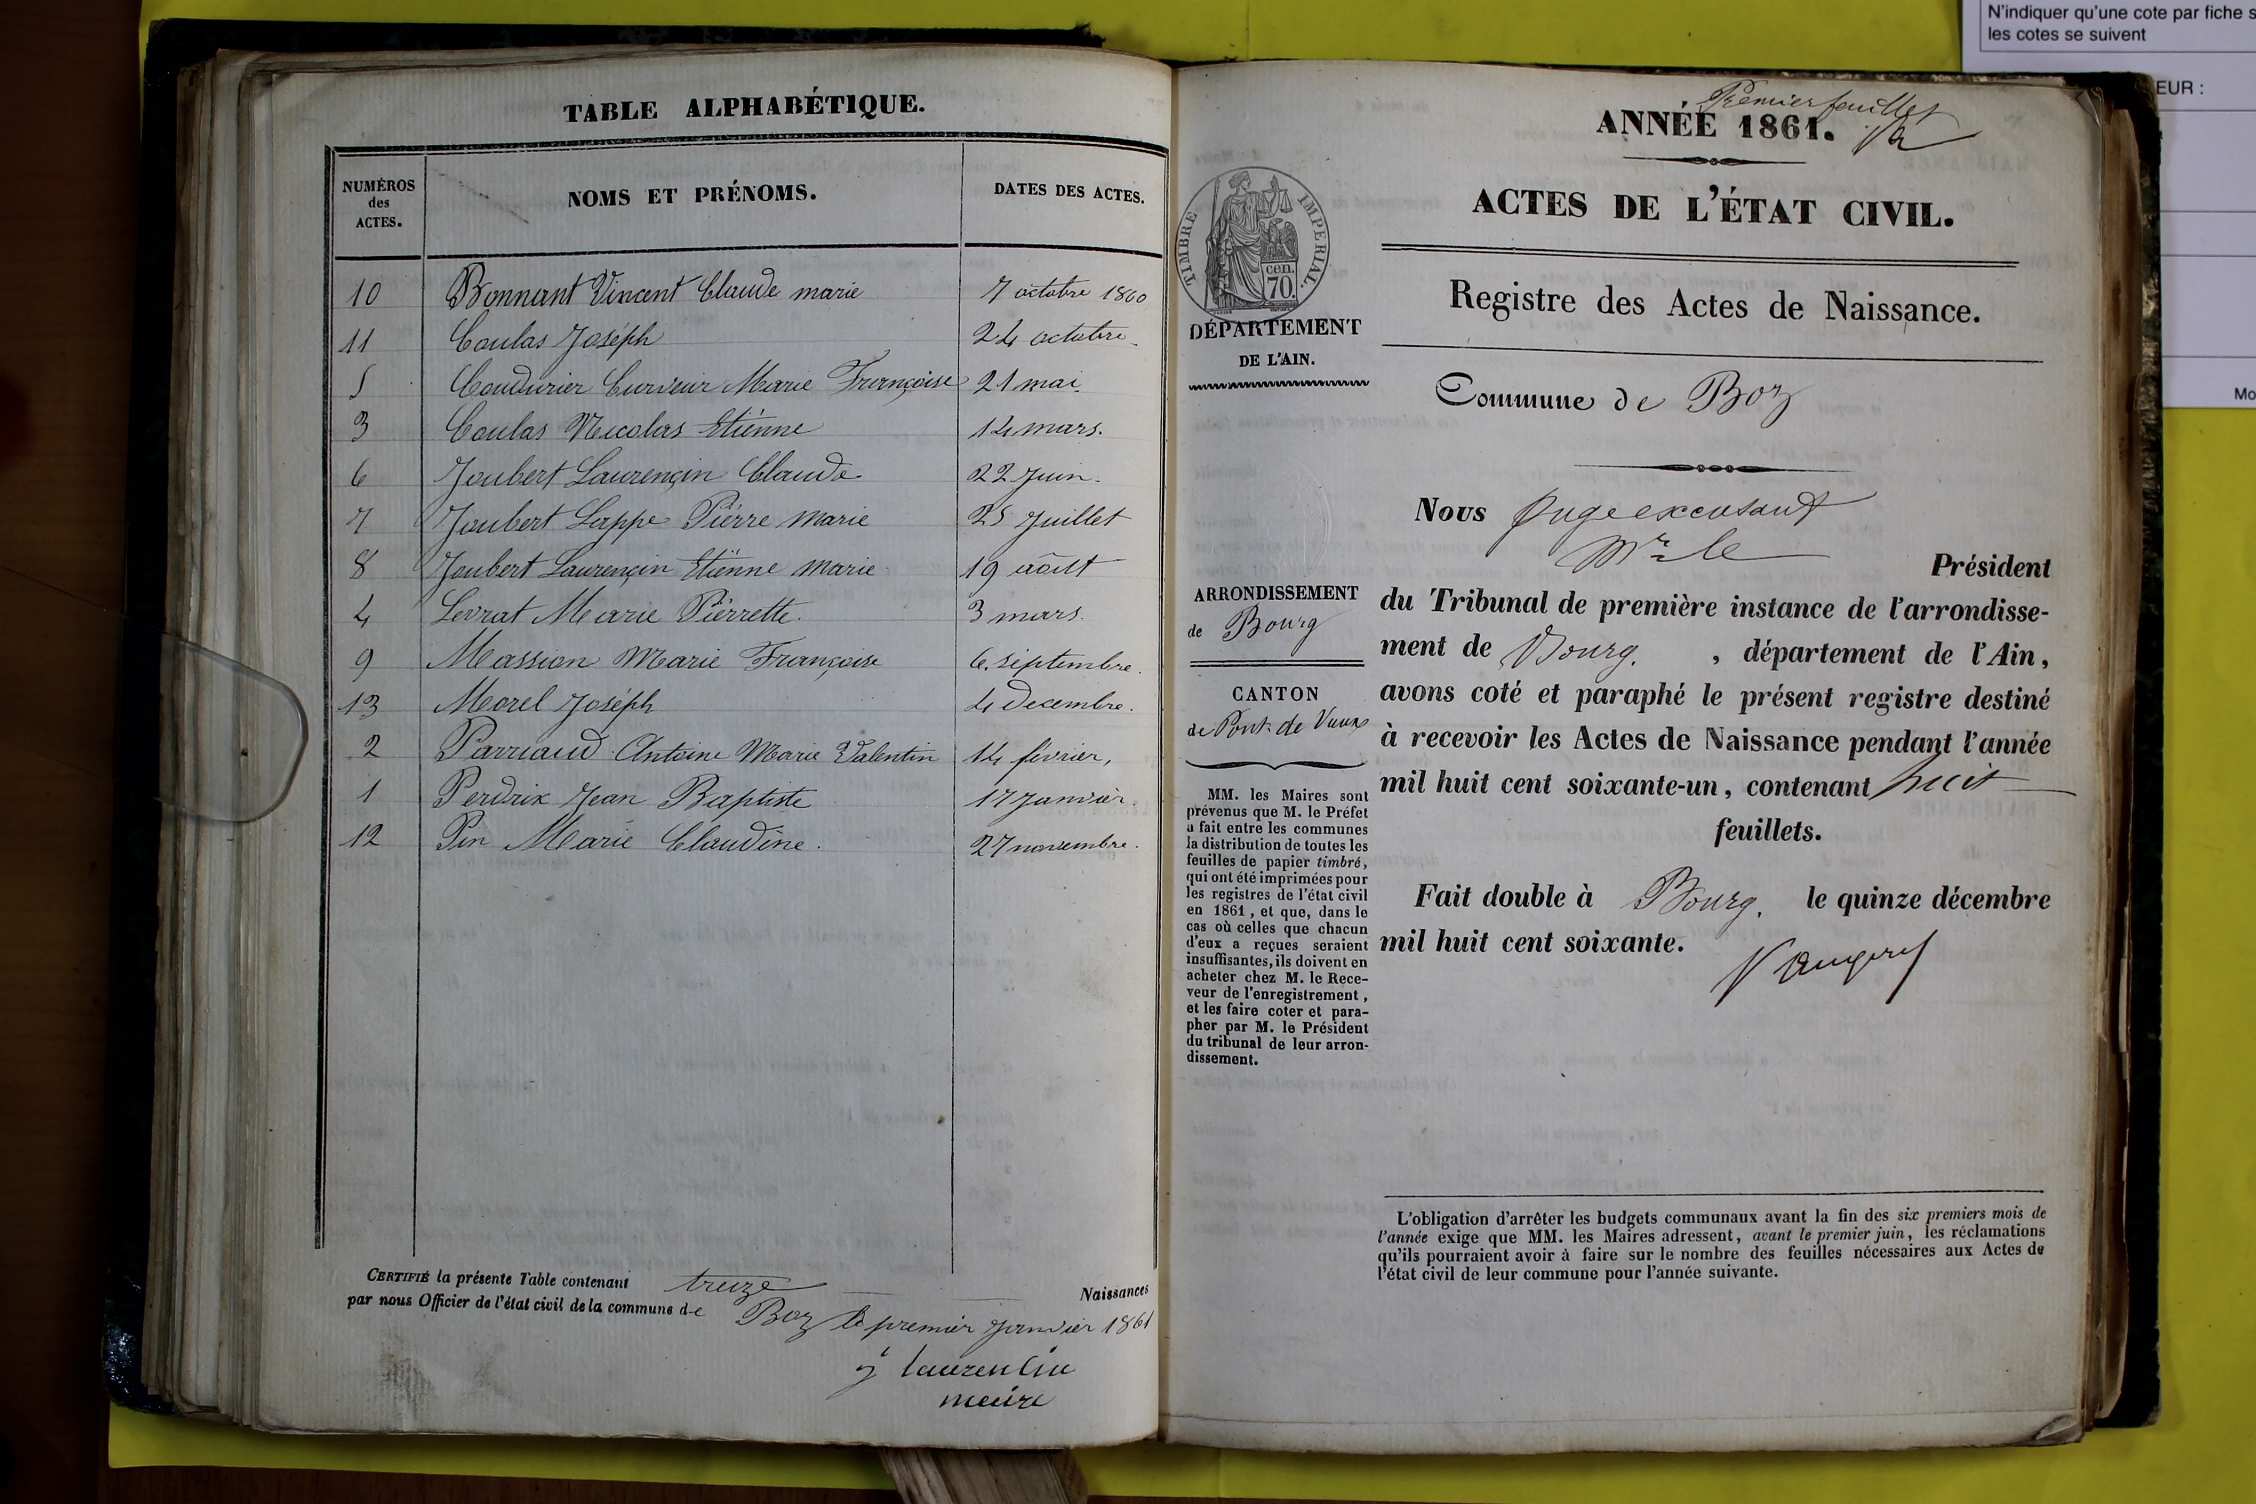 N'indiquer qu'une cote par fiche s
les cotes se suivent
EUR :
Mo
TABLE ALPHABÉTIQUE.
NUMÉROS des ACTES. NOMS ET PRÉNOMS. DATES DES ACTES.
10 Bonnant Vincent Claude marie 7 octobre 1860
11 Coulas Joséph 24 octobre
5 Coudurier Curveur Marie Françoise 21 mai
3 Coulas Nicolas Etiénne 14 mars.
6 Joubert Laurençin Claude 22 Juin.
7 Joubert Lappe Piérre marie 25 Juillet
8 Joubert Laurençin Etiénne marie 19 août
4 Levrat Marie Piérrette. 3 mars.
9 Massion Marie Françoise 6 séptembre.
13 Morel Joséph 4 Decembre.
2 Parriaud Antoine Marie Valentin 14 février,
1 Perdrix Jean Baptiste 17 Janvier.
12 Pin Marie Claudine. 27 novembre.
CERTIFIÉ la présente Table contenant treize Naissances
par nous Officier de l'état civil de la commune de Boz le premier Janvier 1861
j laurencin
maire
Premier feuillet
ANNÉE 1861.
ACTES DE L'ÉTAT CIVIL.
TIMBRE IMPÉRIAL.
cen.
70.
DÉPARTEMENT
DE L'AIN.
ARRONDISSEMENT
de Bourg
CANTON
de Pont-de Vaux
MM. les Maires sont
prévenus que M. le Préfet
a fait entre les communes
la distribution de toutes les
feuilles de papier timbré,
qui ont été imprimées pour
les registres de l'état civil
en 1861, et que, dans le
cas où celles que chacun
d'eux a reçues seraient
insuffisantes, ils doivent en
acheter chez M. le Rece-
veur de l'enregistrement,
et les faire coter et para-
pher par M. le Président
du tribunal de leur arron-
dissement.
Registre des Actes de Naissance.
Commune de Boz
Nous Juge excusant
Mr le
Président
du Tribunal de première instance de l'arrondisse-
ment de Bourg. , département de l'Ain,
avons coté et paraphé le présent registre destiné
à recevoir les Actes de Naissance pendant l'année
mil huit cent soixante-un, contenant huit
feuillets.
Fait double à Bourg. le quinze décembre
mil huit cent soixante.
L'obligation d'arrêter les budgets communaux avant la fin des six premiers mois de
l'année exige que MM. les Maires adressent, avant le premier juin, les réclamations
qu'ils pourraient avoir à faire sur le nombre des feuilles nécessaires aux Actes de
l'état civil de leur commune pour l'année suivante.